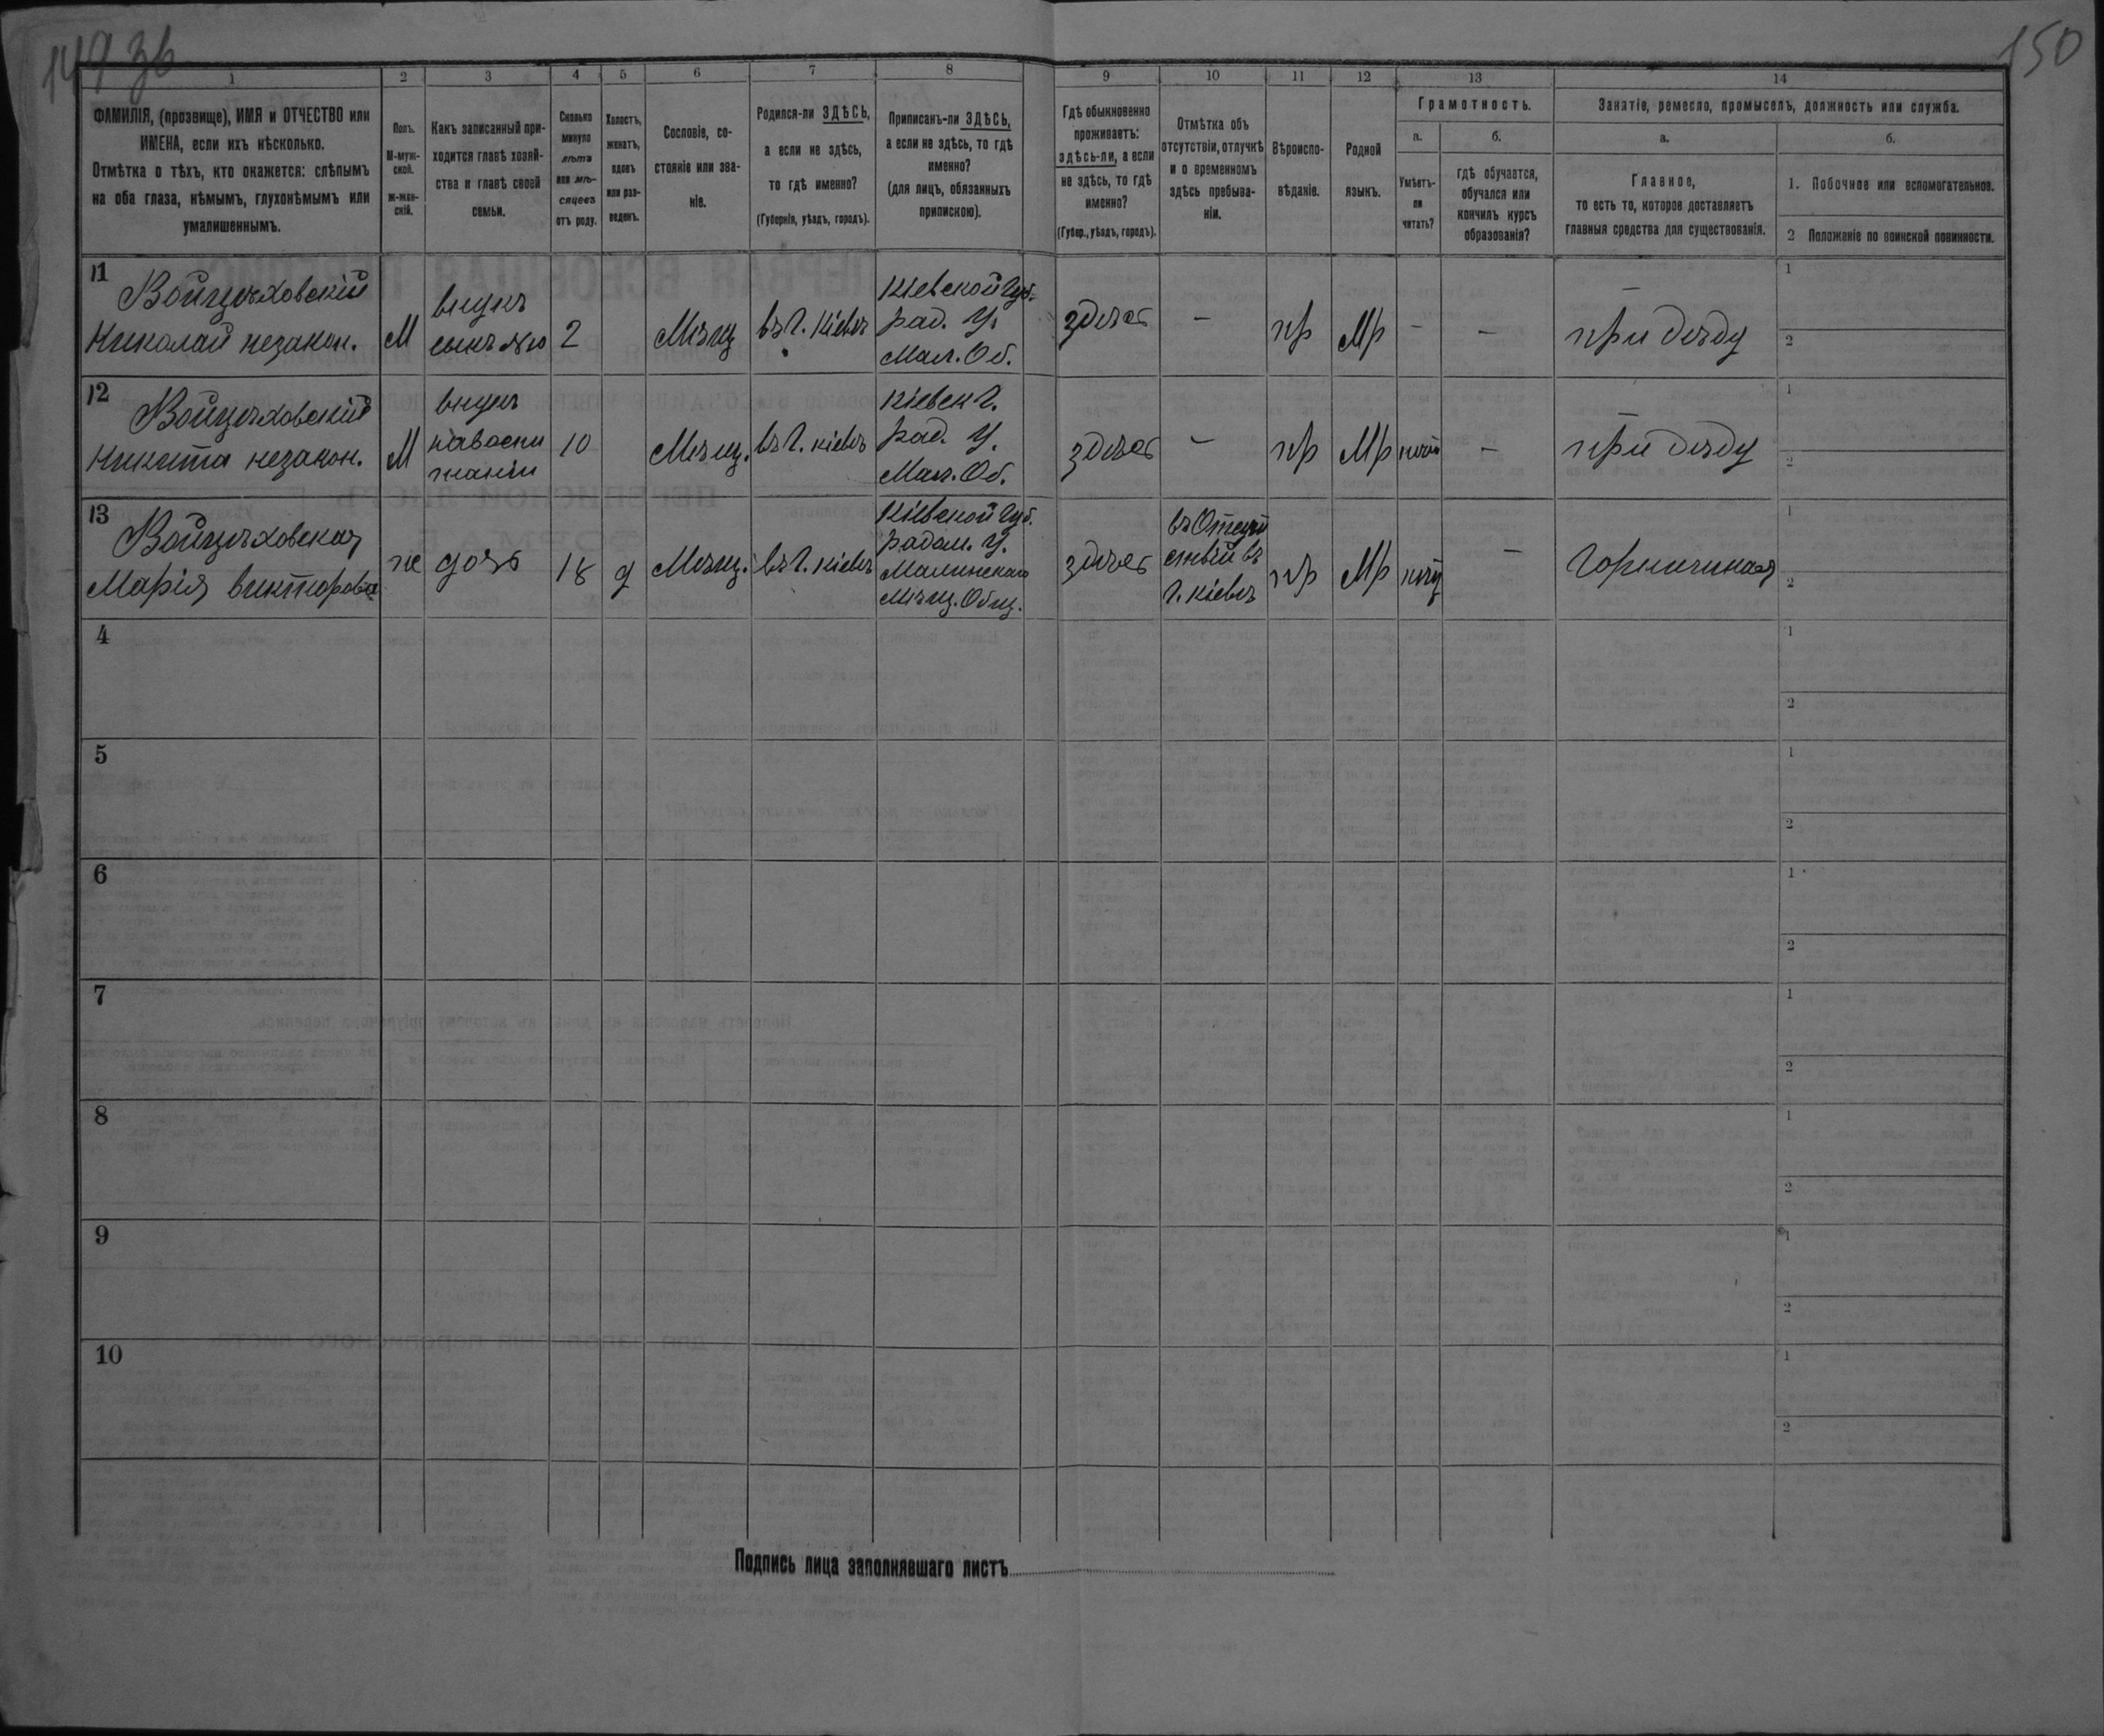 149 зв
150
1
2
3
4
5
6
7
8
9
10
11
12
13
14
ФАМИЛІЯ, (прозвище), ИМЯ и ОТЧЕСТВО или
ИМЕНА, если ихъ нѣсколько.
Отмѣтка о тѣхъ, кто окажется: слѣпымъ
на оба глаза, нѣмымъ, глухонѣмымъ или
умалишеннымъ.
Полъ.
М-муж-
ской.
ж-жен-
скій.
Какъ записанный при-
ходится главѣ хозяй-
ства и главѣ своей
семьи.
Сколько
минуло
лѣтъ
или мѣ-
сяцевъ
отъ роду.
Холостъ,
женатъ,
вдовъ
или раз-
веденъ.
Сословіе, со-
стояніе или зва-
ніе.
Родился-ли ЗДѢСЬ,
а если не здѣсь,
то гдѣ именно?
(Губернія, уѣздъ, городъ).
Приписанъ-ли ЗДѢСЬ,
а если не здѣсь, то гдѣ
именно?
(для лицъ, обязанныхъ
припискою).
Гдѣ обыкновенно
проживаетъ:
здѣсь-ли, а если
не здѣсь, то гдѣ
именно?
(Губер., уѣздъ, городъ).
Отмѣтка объ
отсутствіи, отлучкѣ
и о временномъ
здѣсь пребыва-
ніи.
Вѣроиспо-
вѣданіе.
Родной
языкъ.
Грамотность.
а.
Умѣетъ-
ли
читать?
б.
гдѣ обучается,
обучался или
кончилъ курсъ
образованія?
Занятіе, ремесло, промыселъ, должность или служба.
а.
Главное,
то есть то, которое доставляетъ
главныя средства для существованія.
б.
1. Побочное или вспомогательное.
2 Положеніе по воинской повинности.
11
Войцѣховскій
Николай незакон.
М
внукъ
сынъ №10
2
Мѣщ
въ Г. Кіевѣ
Кіевской Губ.
рад. У.
Мал. Об.
здѣсь
–
пр
Мр
–
–
–
при дѣду
1
2
12
Войцѣховскій
Никита незакон.
М
внукъ
на воспи
таніи
10
Мѣщ.
въ Г. Кіевѣ
Кіевск Г.
рад. У.
Мал. Об.
здѣсь
–
пр
Мр
–
–
при дѣду
1
2
13
Войцѣховская
Марія Викторова
ж
дочь
18
д
Мѣщ.
въ Г. Кіевѣ
Кіевской Губ.
Радом. У.
Малинскаго
Мѣщ. Общ.
здѣсь
въ
въ
Г. Кіевѣ
пр
Мр
–
Горничная
1
2
4
1
2
5
1
2
6
1
2
7
1
2
8
1
2
9
1
2
10
1
2
Подпись лица заполнявшаго листъ